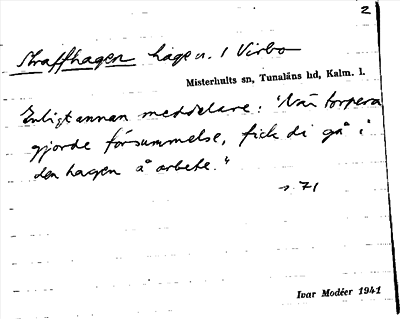 2
Straffhagen hage n. / Virbo
Misterhults sn, Tunaläns hd, Kalm. l.
Enligt annan meddelare: "När torpera
gjorde försummelse, fick di gå i
den hagen å arbete."
s. 71
Ivar Modéer 1941